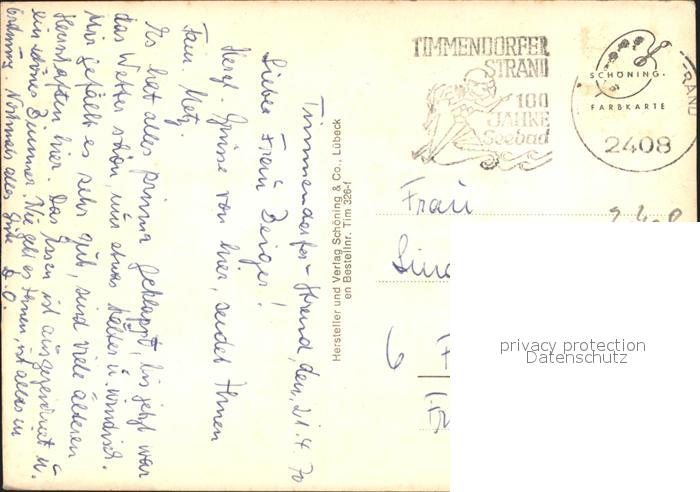 Timmendorfer-Strand, den, 21.4.70
Liebe Frau Berger!
Herzl. Grüsse von hier, sendet Ihnen
Fam. Metz.
Es hat alles prima geklappt, bis jetzt war
das Wetter schön, nur etwas kälter u. windisch.
Mir gefällt es sehr gut, sind viele älteren
Herrschaften hier. Das Essen ist ausgezeichnet u.
ein schönes Zimmer. Wie geht es Ihnen, ist alles in
Ordnung. Nochmals alles Gute
D.O.
Hersteller und Verlag Schöning & Co., Lübeck
en Bestellnr. Tim 326-f
TIMMENDORFER
STRAND
100
JAHRE
Seebad
SCHÖNING
FARBKARTE
RAND
2408
Frau
6
privacy protection
Datenschutz